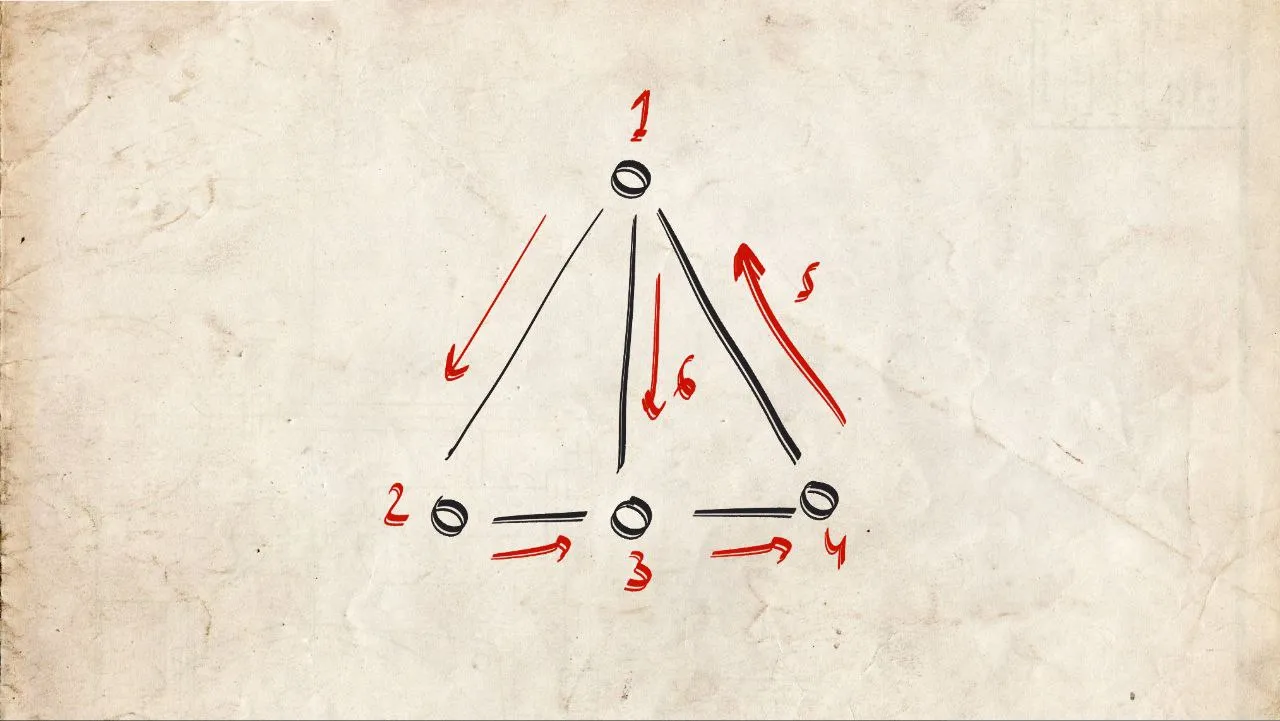 1
5
6
2
3
4